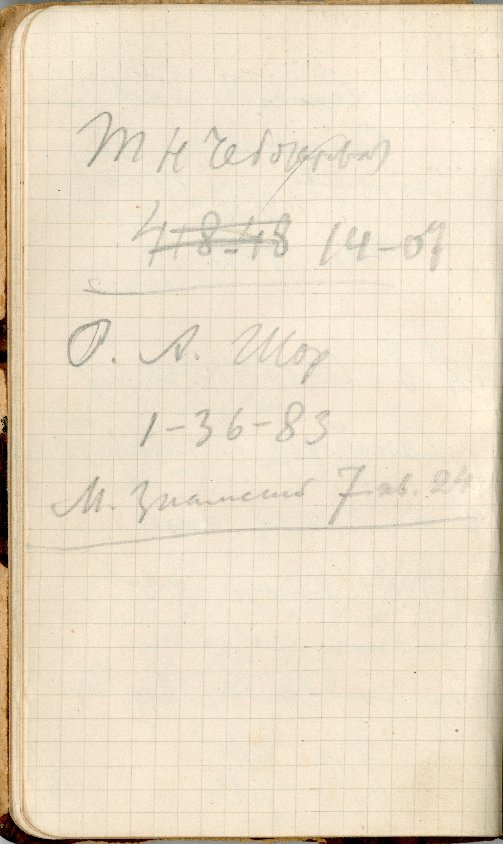 Т Н Чеботаревой
4-18-48 14-07
Р. А. Шор
1-36-83
М. Знаменский 7 кв. 24